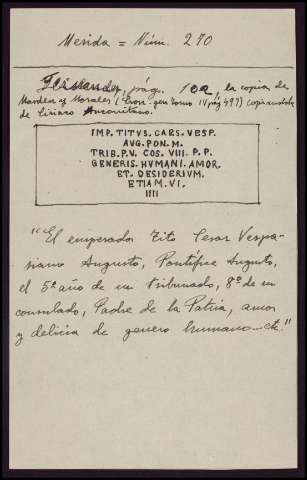 Merida = Núm. 290
Fernandez, pág. 102, la copia de
Morales (Cron. gen tomo IV pág 497) copiandola
de Ciriaco Anconitano.
IMP. TITVS. CAES. VESP.
AVG. PON. M.
TRIB. P. V. COS. VIII. P. P.
GENERIS. HVMANI. AMOR.
ET. DESIDERIVM.
ETIAM. VI.
IIII
"El emperador Tito Cesar Vespa-
siano Augusto, Pontífice Augusto,
el 5º año de su tribunado, 8º de su
consulado, Padre de la Patria, amor
y delicia de genero humano...etc."